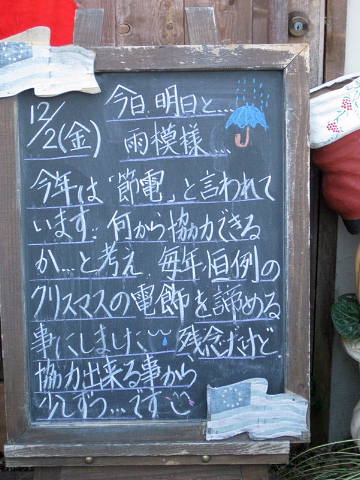 12/2(金)
今日、明日と…
雨模様…
今年は「節電」と言われて
います。何から協力できる
か…と考え、毎年恒例の
クリスマスの電飾を諦める
事にしました 残念だけど
協力出来る事から
少しずつ…です